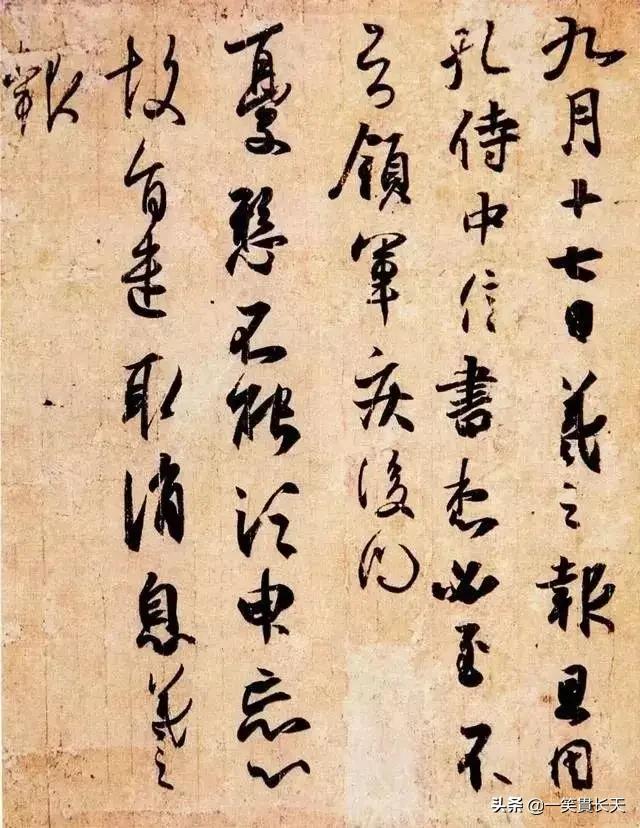 九月十七日羲之報且因
孔侍中信書想必至不
知領軍疾後問
憂懸不能須臾忘心
故旨遣取消息羲之
報
头条 @一笑貴长天